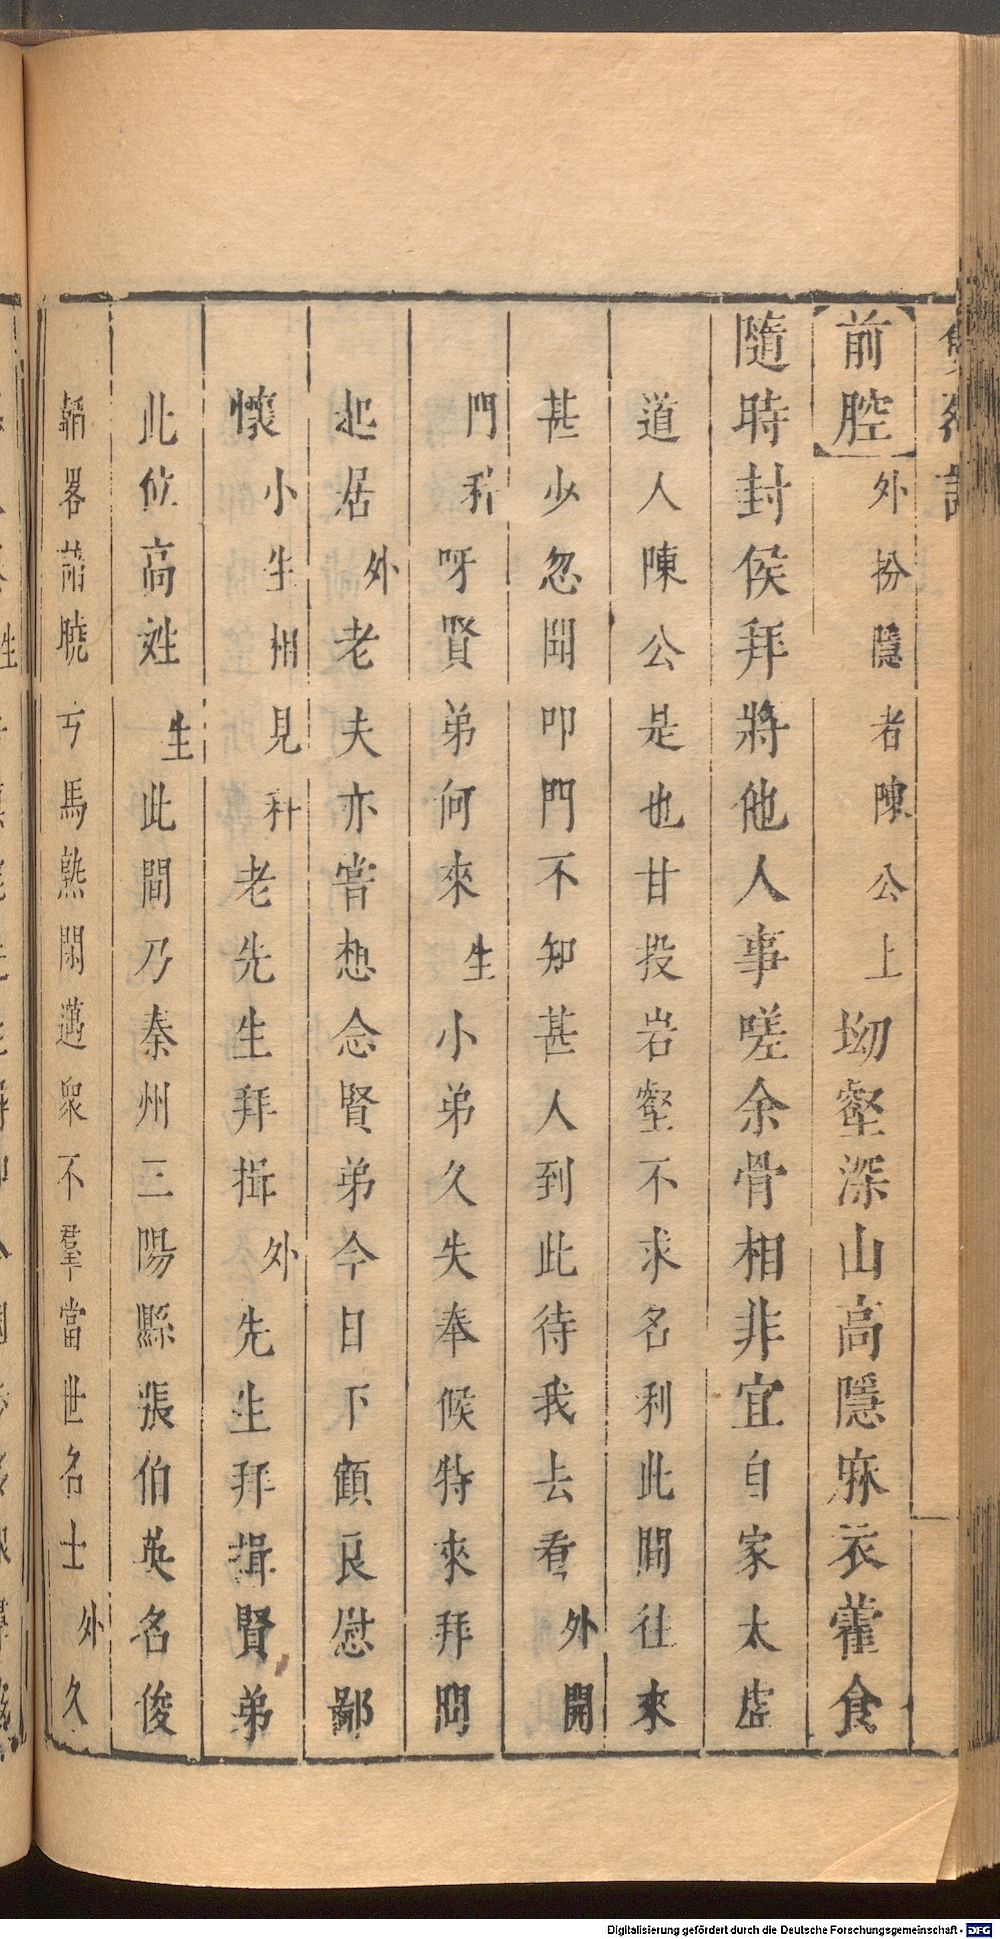 前腔外扮隱者陳公上坳壑深山高隱麻衣藿食
隨時封侯拜將他人事嗟余骨相非宜自家太虛
道人陳公是也甘投岩壑不求名利此間往來
甚少忽聞叩門不知甚人到此待我去看外開
門科呀賢弟何來生小弟久失奉候特來拜問
起居外老夫亦嘗想念賢弟今日下顧良慰鄙
懷小生相見科老先生拜揖外先生拜揖賢弟
此位高姓生此間乃秦州三陽縣張伯英名俊
韜畧 曉弓馬熟閑邁衆不羣當世名士外久
Digitalisierung gefördert durch die Deutsche Forschungsgemeinschaft - DFG